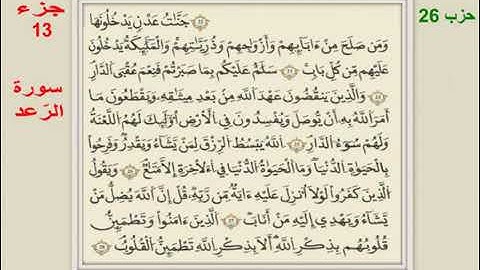 جزء
13
سورة
الرّعد
حزب 26
جَنَّٰتُ عَدْنٍ يَدْخُلُونَهَا
وَمَن صَلَحَ مِنْ ءَابَآئِهِمْ وَأَزْوَٰجِهِمْ وَذُرِّيَّٰتِهِمْ وَالْمَلَٰٓئِكَةُ يَدْخُلُونَ
عَلَيْهِم مِّن كُلِّ بَابٍ سَلَٰمٌ عَلَيْكُم بِمَا صَبَرْتُمْ فَنِعْمَ عُقْبَى الدَّارِ
وَالَّذِينَ يَنقُضُونَ عَهْدَ اللَّهِ مِنۢ بَعْدِ مِيثَٰقِهِ وَيَقْطَعُونَ مَآ
أَمَرَ اللَّهُ بِهِ أَن يُوصَلَ وَيُفْسِدُونَ فِي الْأَرْضِ أُوْلَٰٓئِكَ لَهُمُ اللَّعْنَةُ
وَلَهُمْ سُوٓءُ الدَّارِ اللَّهُ يَبْسُطُ الرِّزْقَ لِمَن يَشَآءُ وَيَقْدِرُ وَفَرِحُوا
بِالْحَيَوٰةِ الدُّنْيَا وَمَا الْحَيَوٰةُ الدُّنْيَا فِي الْأَخِرَةِ إِلَّا مَتَٰعٌ وَيَقُولُ
الَّذِينَ كَفَرُوا لَوْلَآ أُنزِلَ عَلَيْهِ ءَايَةٌ مِّن رَّبِّهِ قُلْ إِنَّ اللَّهَ يُضِلُّ مَن
يَشَآءُ وَيَهْدِي إِلَيْهِ مَنْ أَنَابَ الَّذِينَ ءَامَنُوا وَتَطْمَئِنُّ
قُلُوبُهُم بِذِكْرِ اللَّهِ أَلَا بِذِكْرِ اللَّهِ تَطْمَئِنُّ الْقُلُوبُ